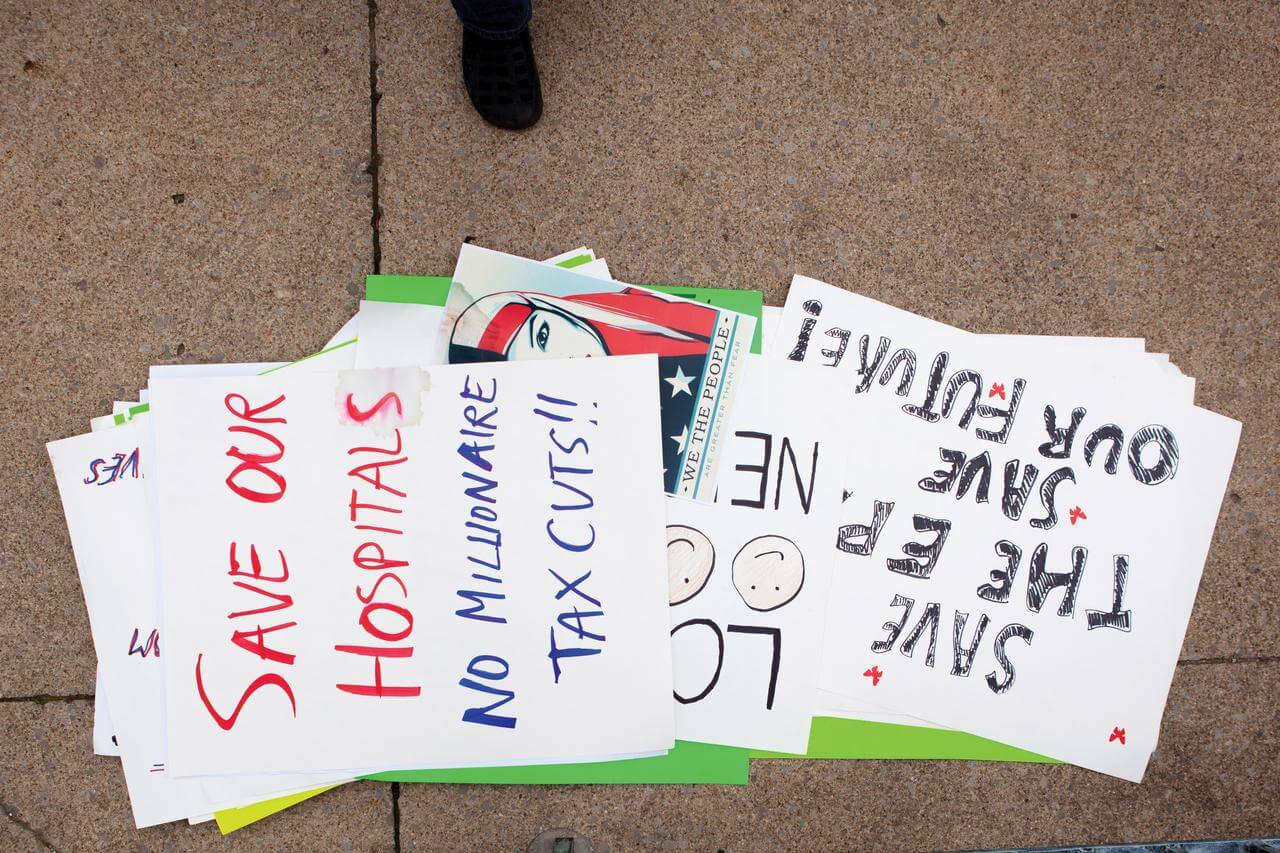 SAVE OUR
HOSPITALS
NO MILLIONAIRE
TAX CUTS!!
· WE THE PEOPLE ·
ARE GREATER THAN FEAR
LO
NE
SAVE
THE EP
SAVE
OUR FUTURE!